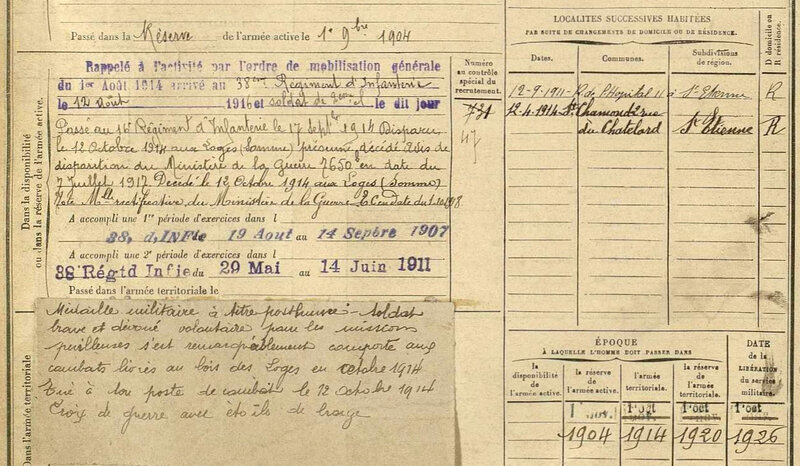 Passé dans la Réserve de l'armée active le 1er 9bre 1904
Rappelé à l'activité par l'ordre de mobilisation générale
du 1er Août 1914 arrivé au 38ème Régiment d'Infanterie
le 12 Août 1916 et soldat de le dit jour
Passé au 16e Régiment d'Infanterie le 17 Septbre 1914 Disparu
le 12 Octobre 1914 aux Loges (Somme) présumé décédé Avis de
disparition du Ministère de la Guerre 7650 en date du
7 juillet 1917 Décédé le 12 Octobre 1914 aux Loges (Somme)
rectificative du Ministère de la Guerre en date du
A accompli une 1re période d'exercices dans l
38e d'INFie 19 Aout au 14 Sepbre 1907
A accompli une 2e période d'exercices dans l
38e Régt d Infie du 29 Mai au 14 Juin 1911
Passé dans l'armée territoriale le
Médaille militaire à titre posthume : Soldat
brave et dévoué volontaire pour les missions
périlleuses s'est remarquablement comporté aux
combats livrés au bois des Loges en octobre 1914
Tué à son poste de combat le 12 Octobre 1914
Croix de guerre avec étoile de bronze
Dans la disponibilité
ou dans la réserve de l'armée active.
Dans l'armée territoriale
Numéro
au contrôle
spécial du
recrutement.
731
47
LOCALITÉS SUCCESSIVES HABITÉES
PAR SUITE DE CHANGEMENTS DE DOMICILE OU DE RÉSIDENCE.
Dates. Communes. Subdivisions
de région.
D domicile ou
R résidence.
12-9-1911 R. de l'Hôpital 11 à St Etienne R
12-4-1914 St Chamond 2 rue
du Chatelard St Etienne R
ÉPOQUE
À LAQUELLE L'HOMME DOIT PASSER DANS
DATE
de la
LIBÉRATION
du service
militaire.
la disponibilité
de
l'armée active.
la réserve
de
l'armée active.
l'armée
territoriale.
la réserve
de l'armée
territoriale.
1 nov. 1 oct 1 oct 1 oct
1904 1914 1920 1926